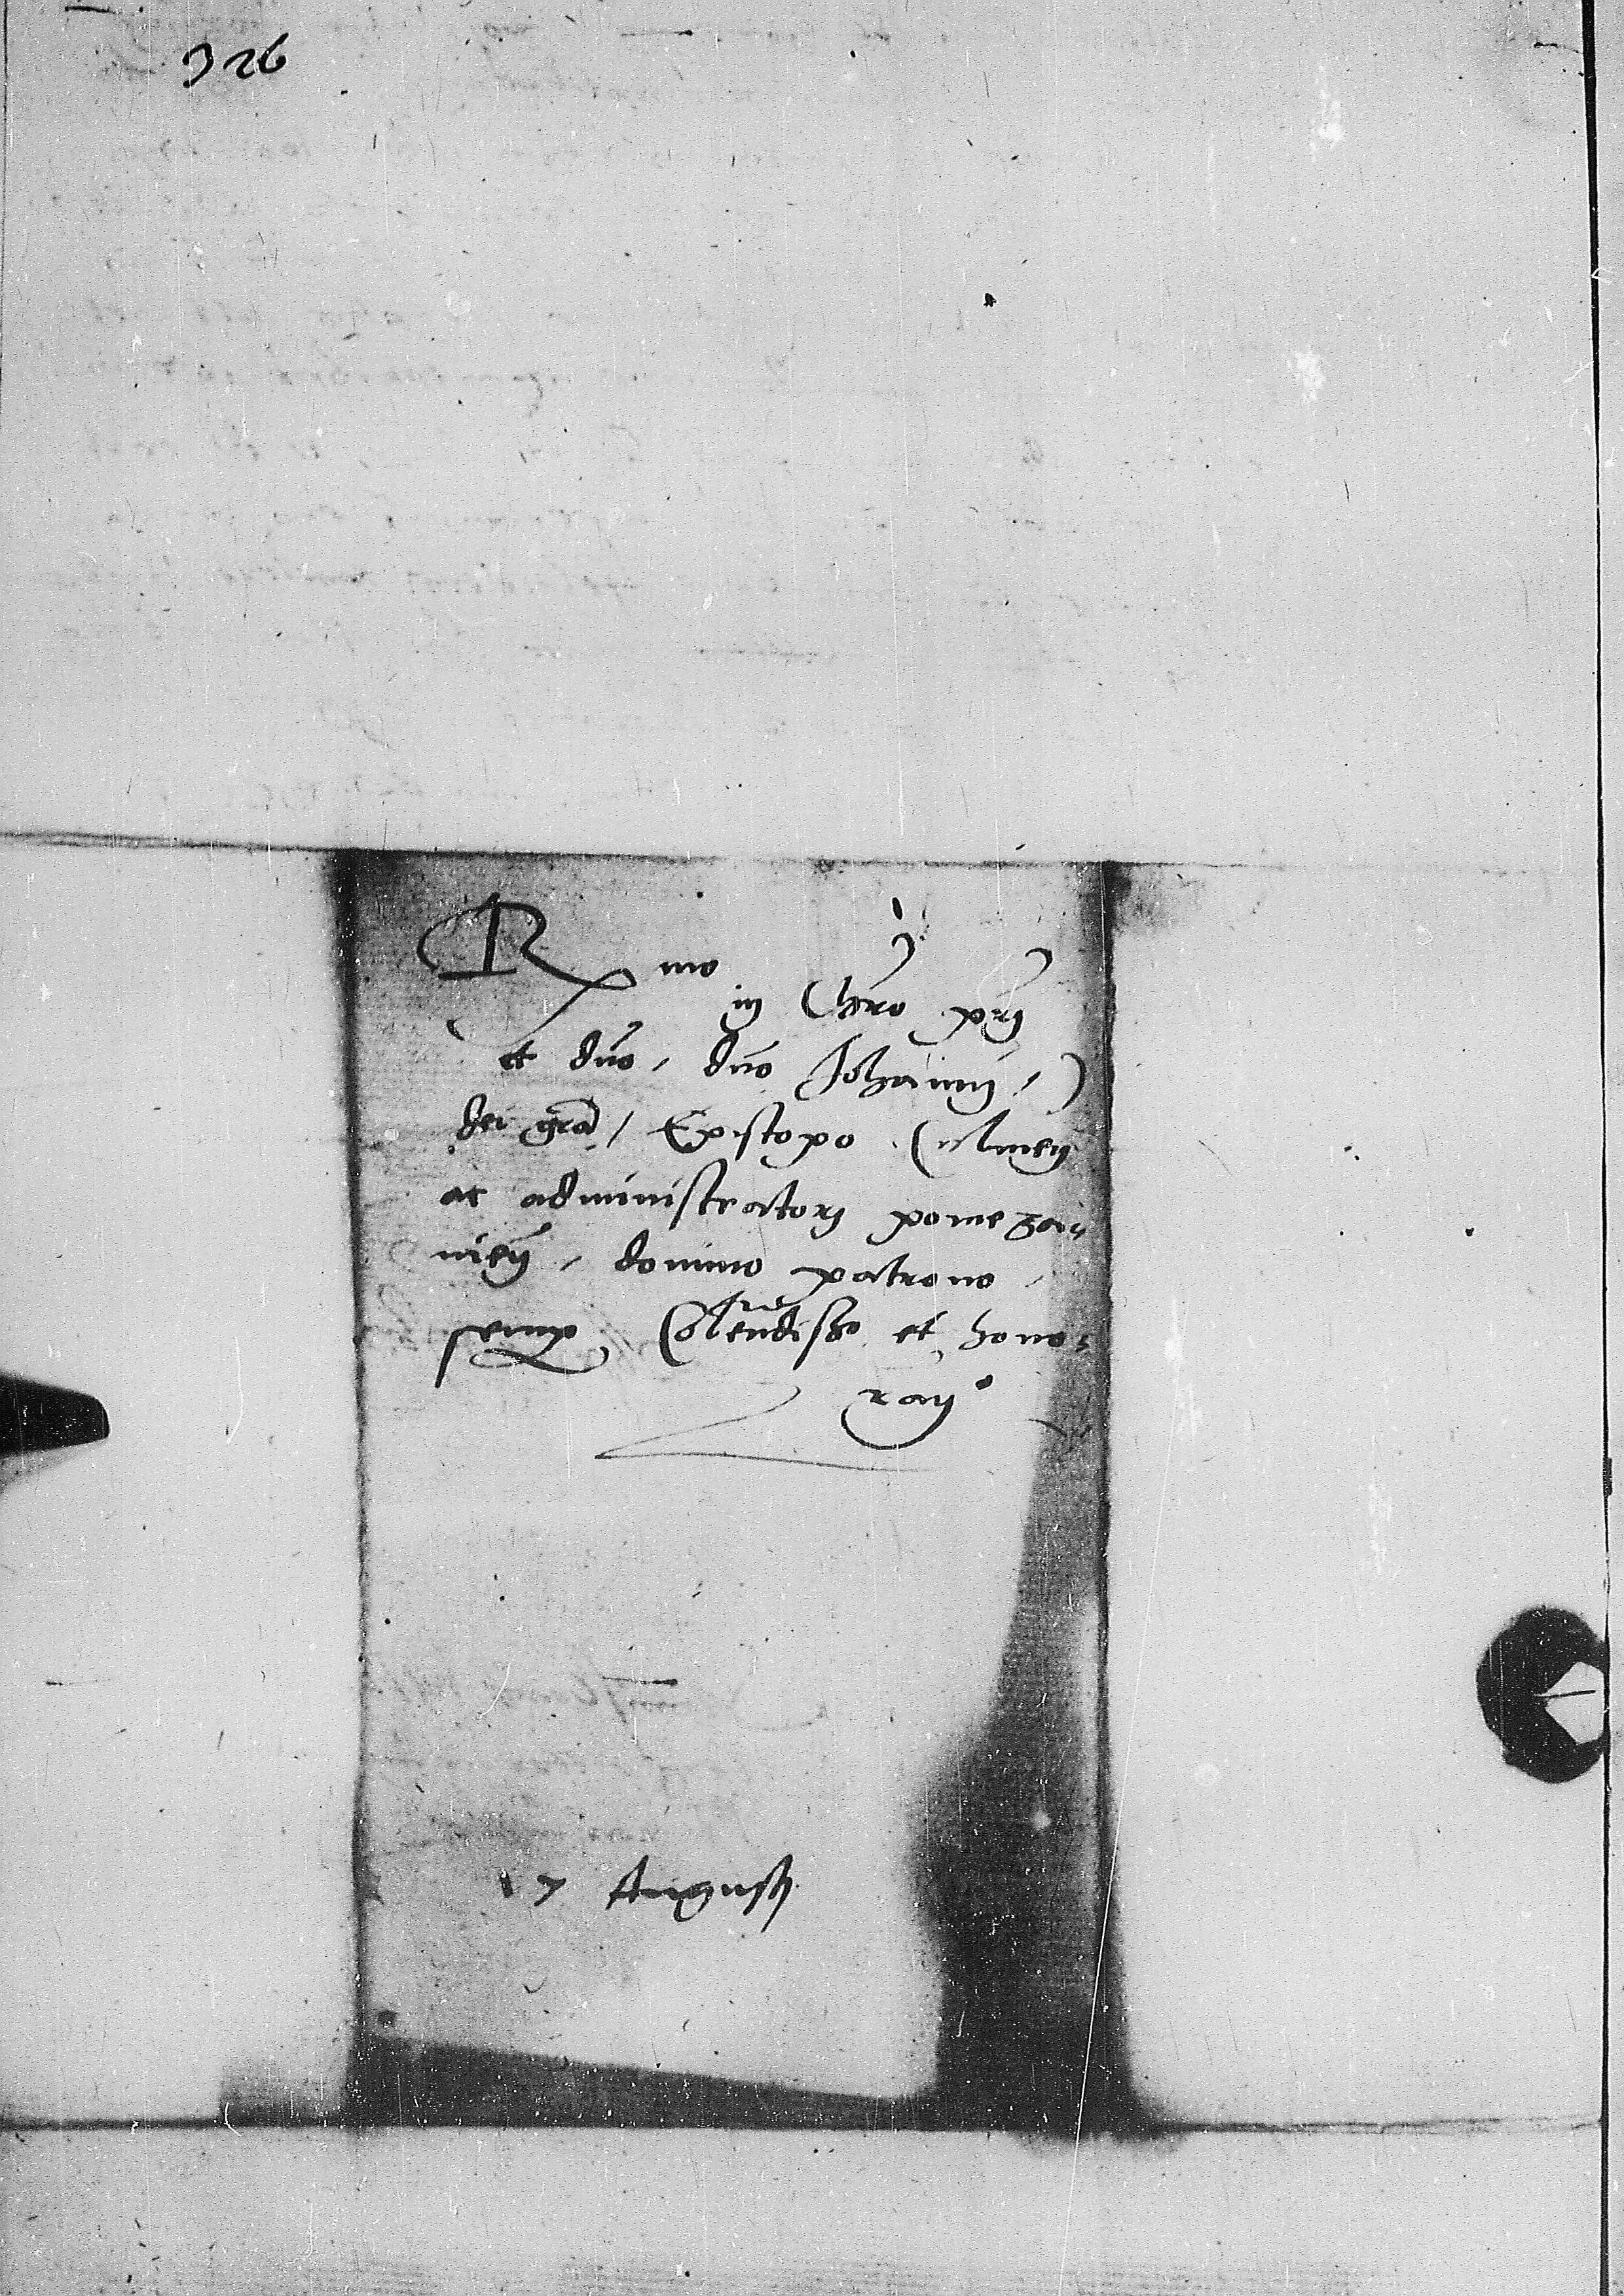 326
Rmo
in Chro pri
et dno, dno Johanni,
dei gra, Episcopo Culmen
ac administratori pomezan,,
nien, domino patrono,
semp Colendisso et hono,,
ran
17 Augusti